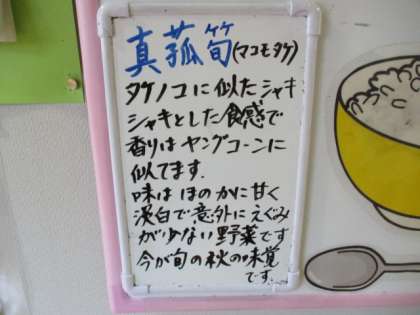 真菰筍(マコモタケ)
タケノコに似たシャキ
シャキとした食感で
香りはヤングコーンに
似てます.
味はほのかに甘く
淡白で意外にえぐみ
が少ない野菜です
今が旬の秋の味覚
です.